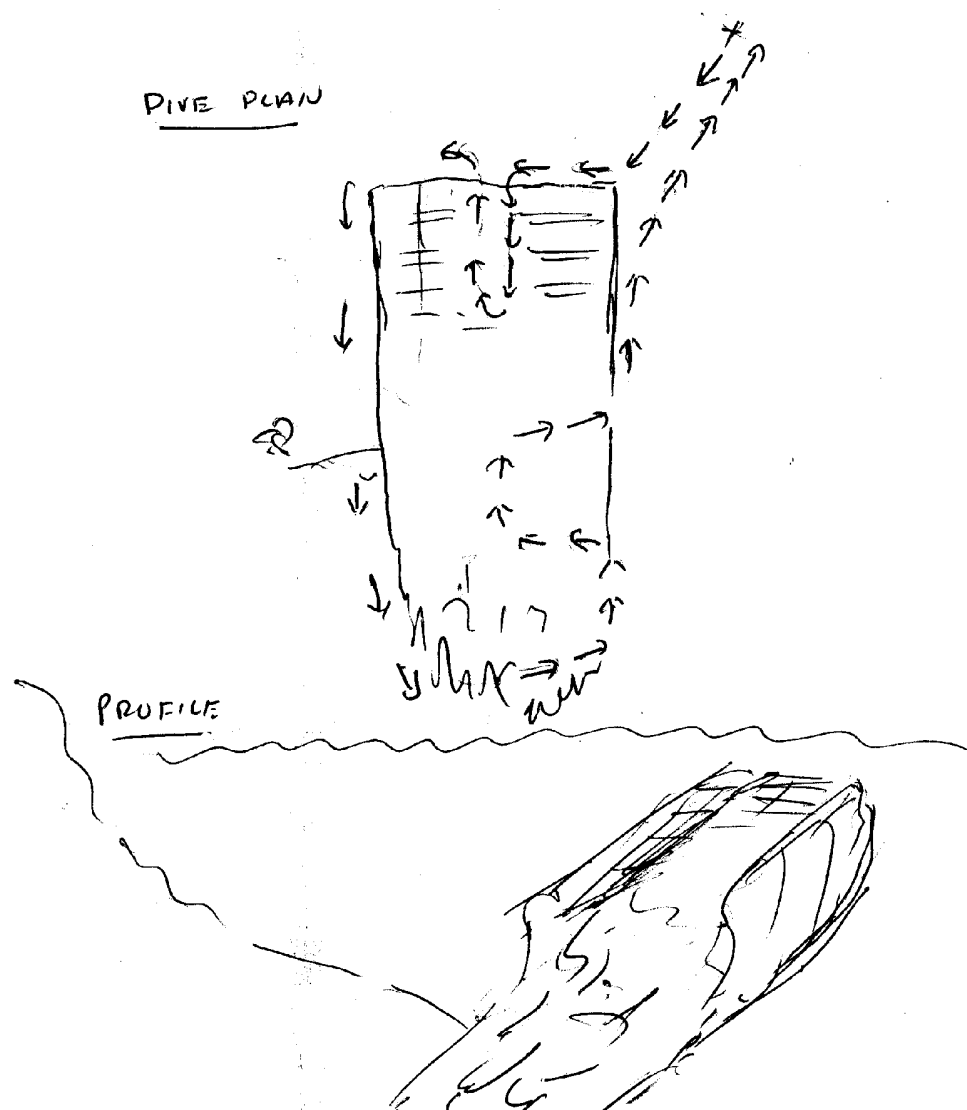 DIVE PLAN
PROFILE